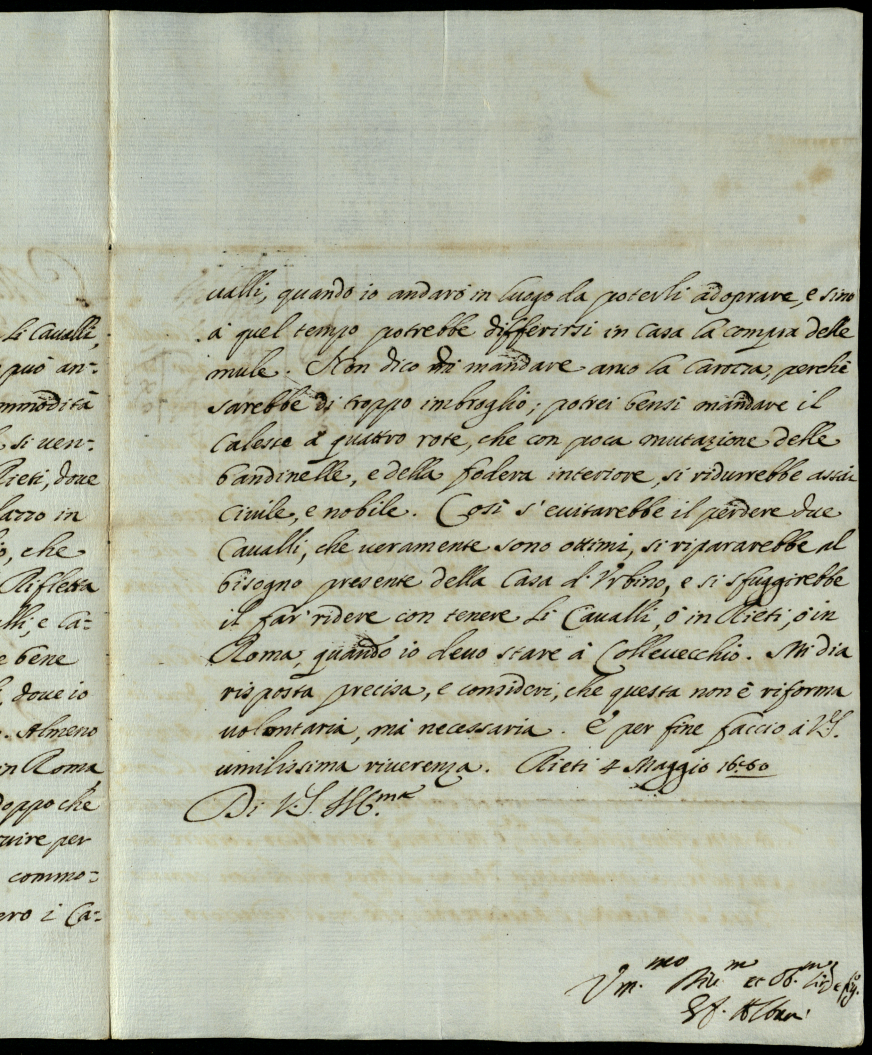 Li Cavalli,
può an-
mmodità
si uen-
Rieti, doue
lazzo in
o, che
Rifletta
lli, e Ca-
e bene
, doue io
. Almeno
in Roma
doppo che
uire per
commo-
ero i Ca-
ualli, quando io andarò in luogo da poterli adoprare, e sino
à quel tempo potrebbe differirsi in Casa la compra delle
mule. Non dico di mandare anco la Carozza, perchè
sarebbe di troppo imbroglio; potrei bensì mandare il
Calesse à quattro rote, che con poca mutazione delle
bandinelle, e della fodera interiore, si ridurrebbe assai
Ciuile, e nobile. Così s'euitarebbe il perdere due
Caualli, che ueramente sono ottimi, si ripararebbe al
bisogno presente della Casa d'Vrbino, e si sfuggirebbe
il far ridere con tenere Li Caualli, ò in Rieti, ò in
Roma, quando io deuo stare à Colleuecchio. Mi dia
risposta precisa, e consideri, che questa non è riforma
uolontaria, mà necessaria. E per fine faccio à V.S.
umilissima riuerenza. Rieti 4 Maggio 1660
Di V.S. Ill.ma
Vm.mo
Alban